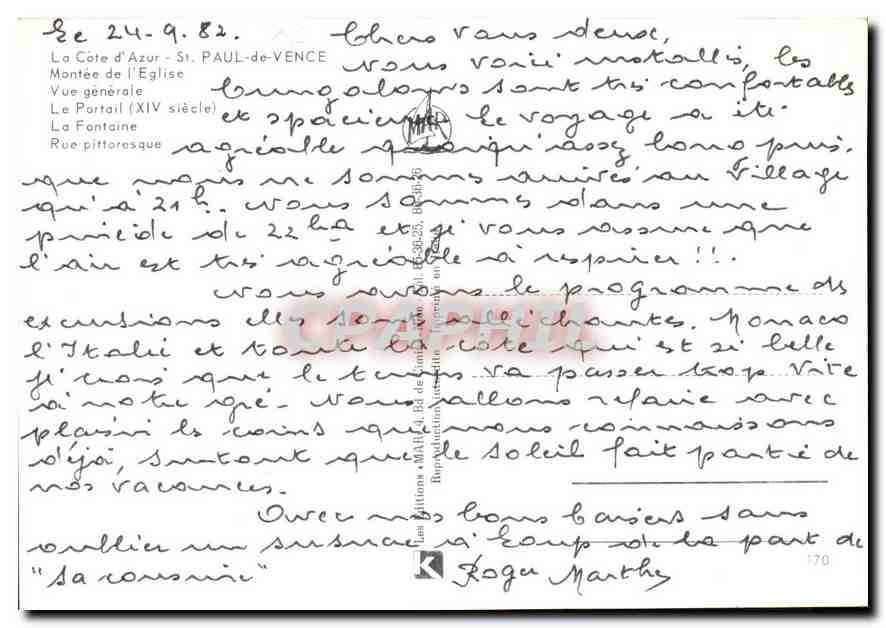 Le 24-9.82. Chers vous deux,
La Côte d'Azur - St. PAUL-de-VENCE
Montée de l'Eglise
Vue générale
Le Portail (XIV siècle)
La Fontaine
Rue pittoresque
nous voici installés, les
bungalows sont très confortables
et spacieux le voyage a été
agréable quoiqu'assez long puis.
que nous ne sommes arrivés au Village
qu'à 21h. nous sommes dans une
pinède de 22 ha et je vous assure que
l'air est très agréable à respirer!!.
nous avons le programme des
excursions elles sont alléchantes. Monaco
l'Italie et toute la côte qui est si belle
je crois que le temps va passer trop vite
à notre gré. nous allons refaire avec
plaisir les coins que nous connaissons
déjà, surtout que le soleil fait partie de
nos vacances.
Avec nos bons baisers sans
oublier un à de la part de
"sa cousine" Roger Marthe
Les Editions «MAR» 4, Bd de Cimiez
Reproduction interdite - Imprimé en
86-36-25, 86-36-26
MAR
K
170
CPAPHIL